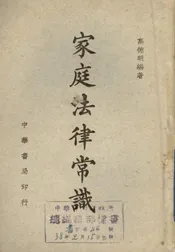 高德明編著
家庭法律常識
中華書局印行